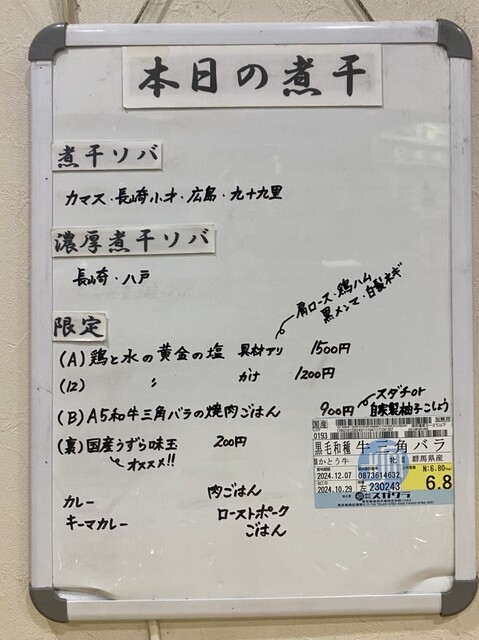 本日の煮干
煮干ソバ
カマス・長崎小才・広島・九十九里
濃厚煮干ソバ
長崎・八戸
肩ロース・鶏ハム
黒メンマ・白髪ネギ
限定
(A) 鶏と水の黄金の塩 具材アリ 1500円
(12) 〃 かけ 1200円
(B) A5和牛三角バラの焼肉ごはん 900円
スダチor
自家製柚子こしょう
(裏) 国産うずら味玉 200円
オススメ!!
カレー 肉ごはん
キーマカレー ローストポーク
ごはん
国産
0193
黒毛和種 牛三角バラ
かとう牛 群馬県産
2024.12.07 0873614632 N:6.80
2024.10.29 左230243 6.8
スガワラ